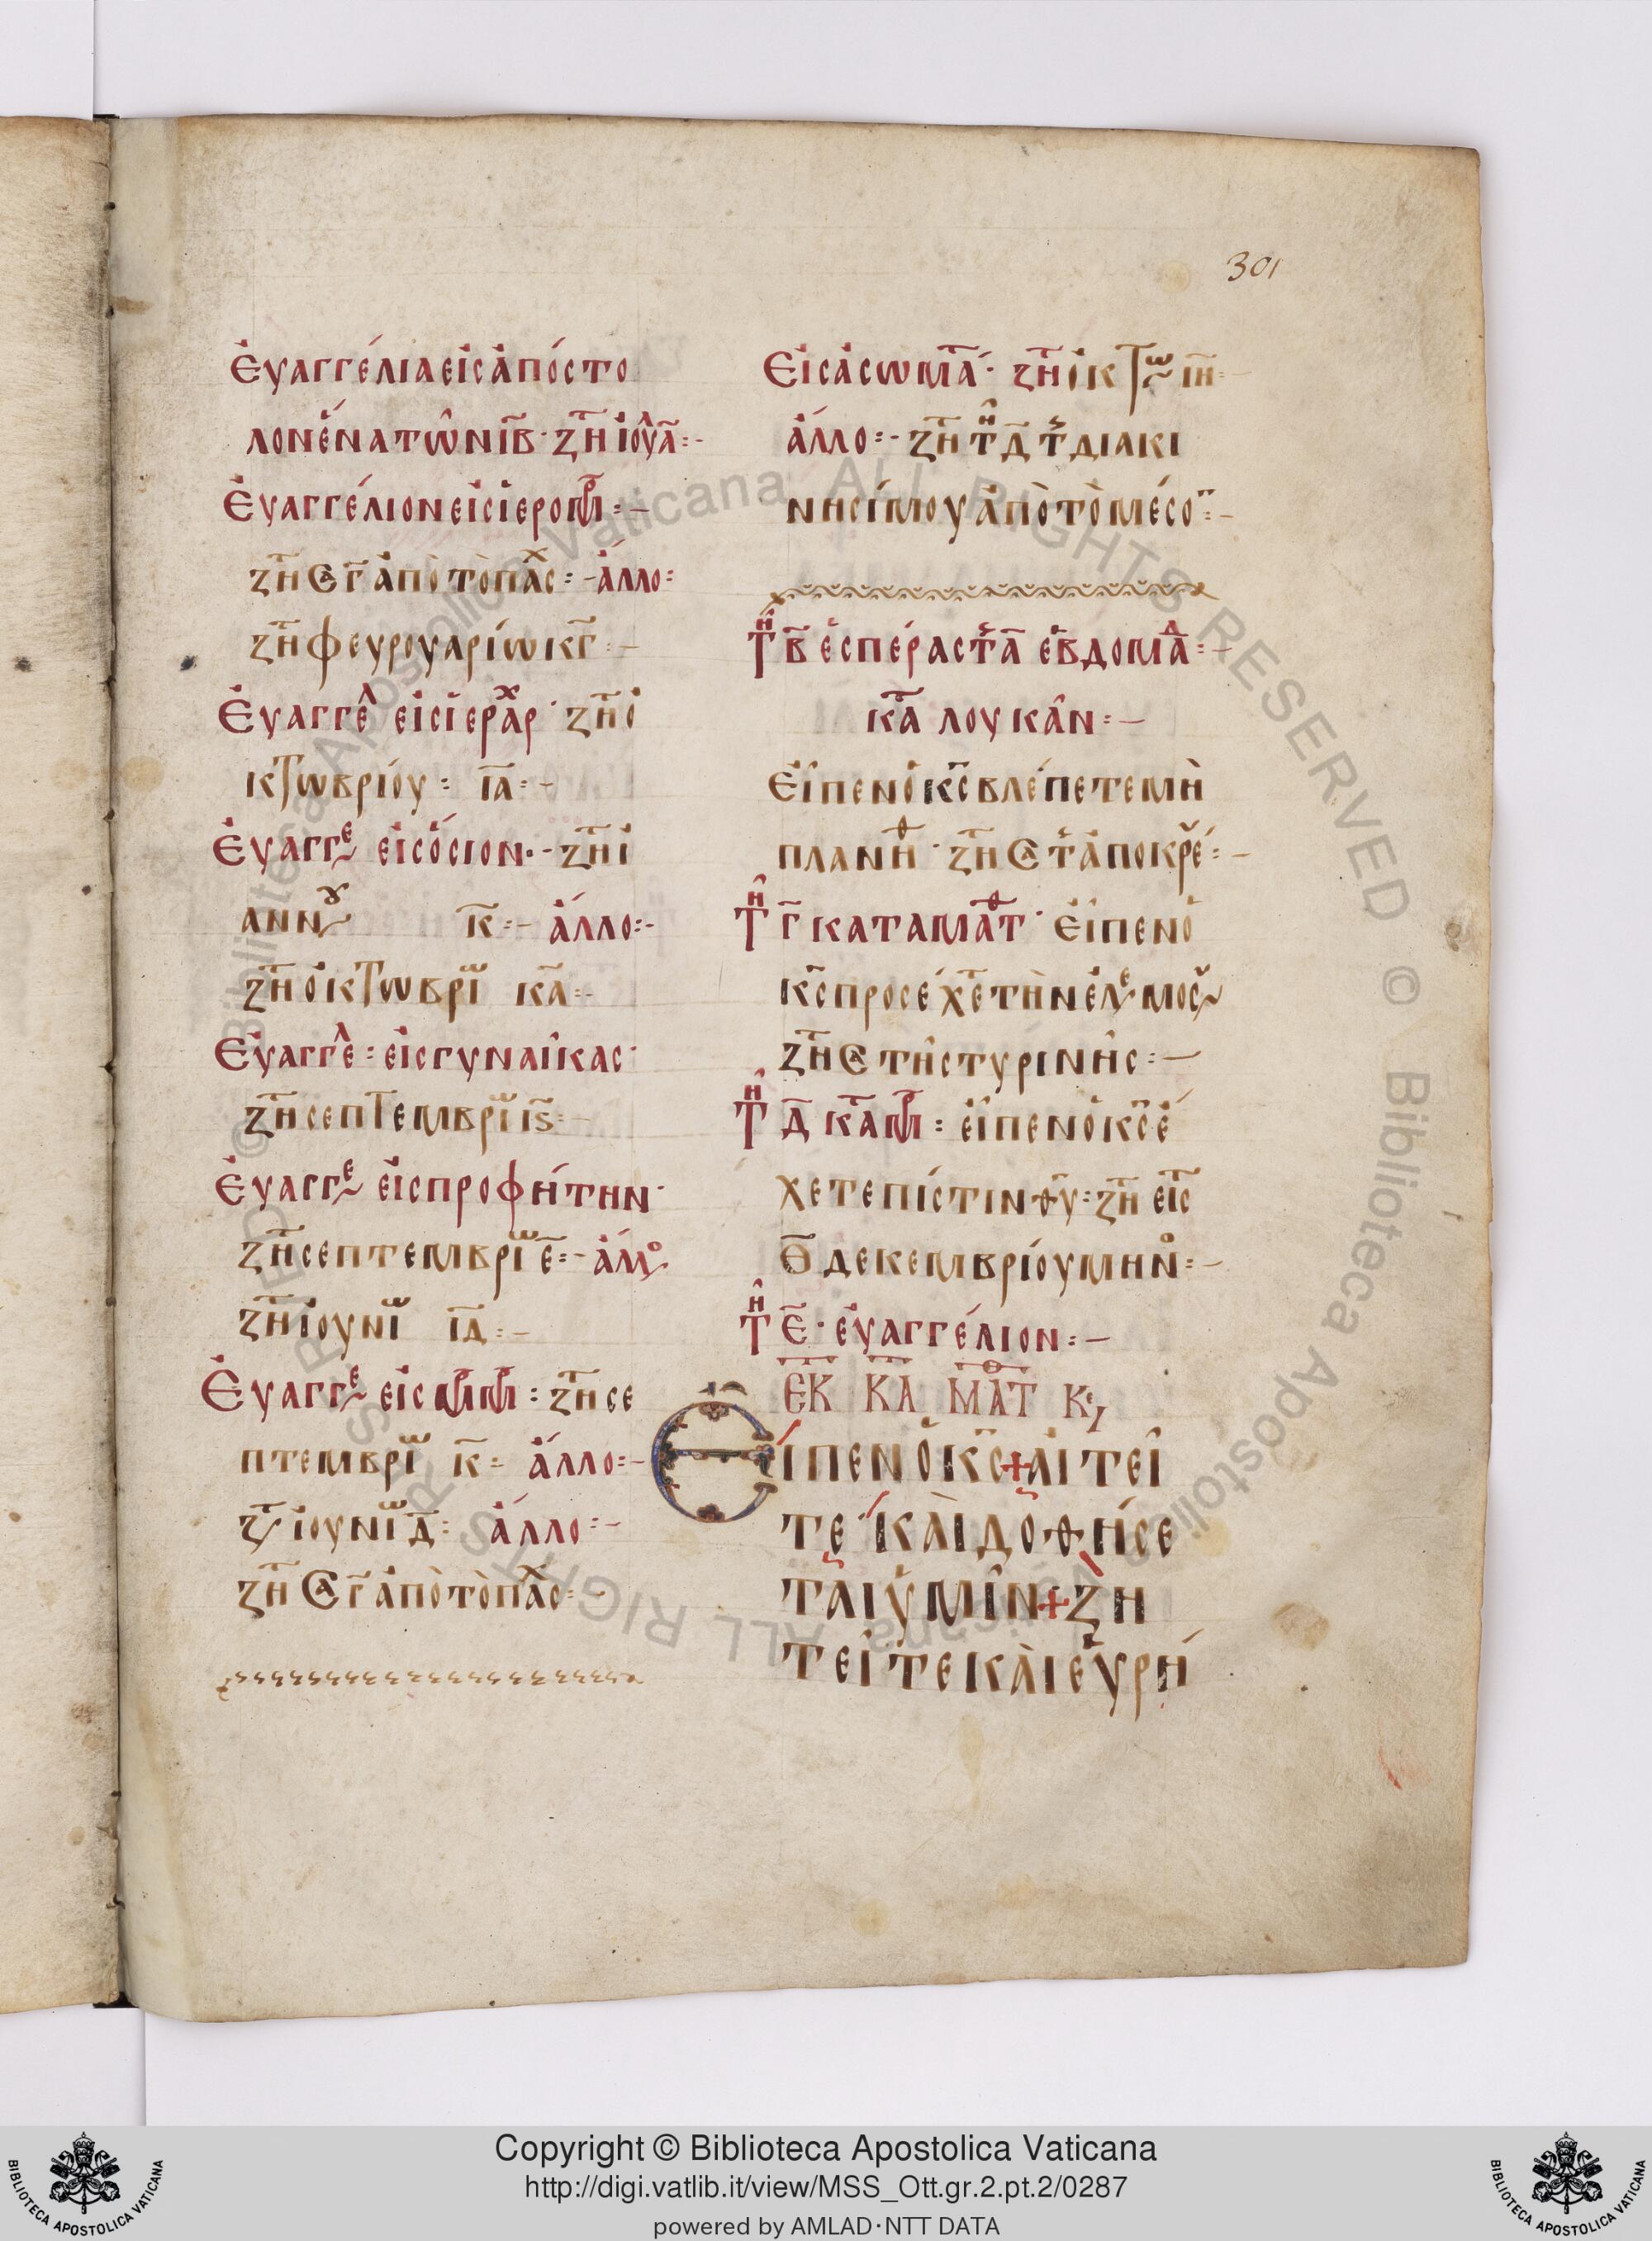 301
Εὐαγγέλια εἰς ἀπόστο
λον ἕνα τῶν ιβ̅· ζη̅ ἰουλ̅:-
Εὐαγγέλιον εἰς ἱερομ̅ρ:-
ζη̅ Σα γ̅ ἀπὸ τὸ πασχ:- ἄλλο:
ζη̅ φευρουαρίω κγ̅:-
Εὐαγγελ εἰς ἱεραρχ· ζη̅ ὀ
κτωβρίου: ια̅:-
Εὐαγγε εἰς ὅσιον·- ζη̅ ἰ
ανν κ̅:- ἄλλο:-
ζη̅ ὀκτωβρι κα̅:-
Εὐαγγελ: εἰς γυναῖκας·
ζη̅ σεπτεμβρι ις̅:-
Εὐαγγε εἰς προφήτην·
ζη̅ σεπτεμβρι ε̅:- ἄλλο
ζη̅ ἰουνι ιδ̅:-
Εὐαγγε εἰς : ζη̅ σε
πτεμβρι κ̅: ἄλλο:-
ζη ἰουνι δ̅: ἄλλο:-
ζη̅ Σα γ̅ ἀπὸ τὸ πασχ:-
Εἰς ἀσωμα̅τ· ζη̅ ὀκτω ιη̅:-
ἄλλο:- ζη̅ τῆ δ̅ τς διακι
νησίμου ἀπὸ τὸ μέσο:-
Τῆ β̅ ἑσπέρας τς α̅ ἑβδομαδ:-
κα̅τ λουκᾶν:-
Εἶπεν ὁ κ̅ς βλέπετε μὴ
πλανηθ· ζη̅ Σα τς ἀποκρέ:-
Τῆ γ̅ κατα ματθ· εἶπεν ὁ
κ̅ς προσέχετε τὴν ἐλεμος
ζη̅ Σα τῆς τυρινῆς:-
Τῆ δ̅ κα̅τ μ̅ρ: εἶπεν ὁ κ̅ς ἔ
χετε πίστιν θ̅υ: ζη̅ εἰς τ
θ̅ δεκεμβρίου μην:-
Τῆ ε̅· εὐαγγέλιον:-
ΕΚ ΚΑ ΜΑΤΘ Κε
Εἶπεν ὁ κ̅ς + αἰτεῖ
τε καὶ δοθήσε
ται ὑμῖν + ζη
τεῖτε καὶ εὑρή
Copyright © Biblioteca Apostolica Vaticana
http://digi.vatlib.it/view/MSS_Ott.gr.2.pt.2/0287
powered by AMLAD·NTT DATA
BIBLIOTECA APOSTOLICA VATICANA
BIBLIOTECA APOSTOLICA VATICANA